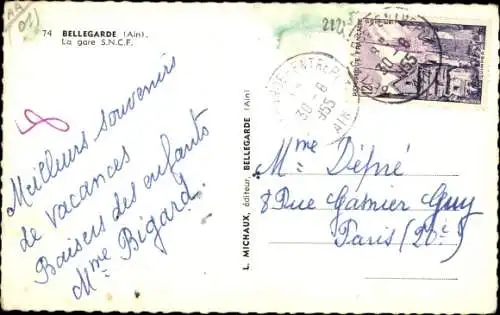 74 BELLEGARDE (Ain).
La gare S.N.C.F.
Meilleurs souvenirs
de vacances
Baisers des enfants
Mme Bigard.
L. MICHAUX, éditeur, BELLEGARDE (Ain)
30-8
1955
AIN
30-8
1955
12F
Mme Dépré
8 Rue Garnier Guy
Paris (20e)